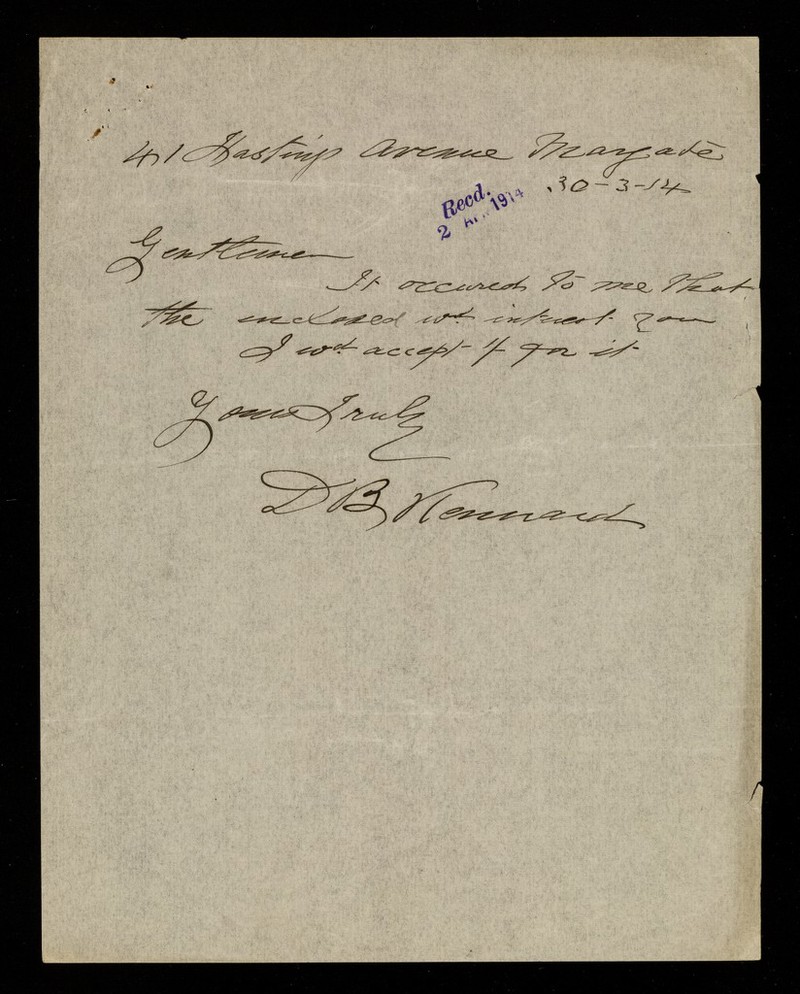 41 Hastings Avenue Margate
30-3-14
Recd.
2 1914
Gentlemen
It occured to me that
the enclosed wd. interest you
I wd. accept for it
Yours Truly
D B Kennard